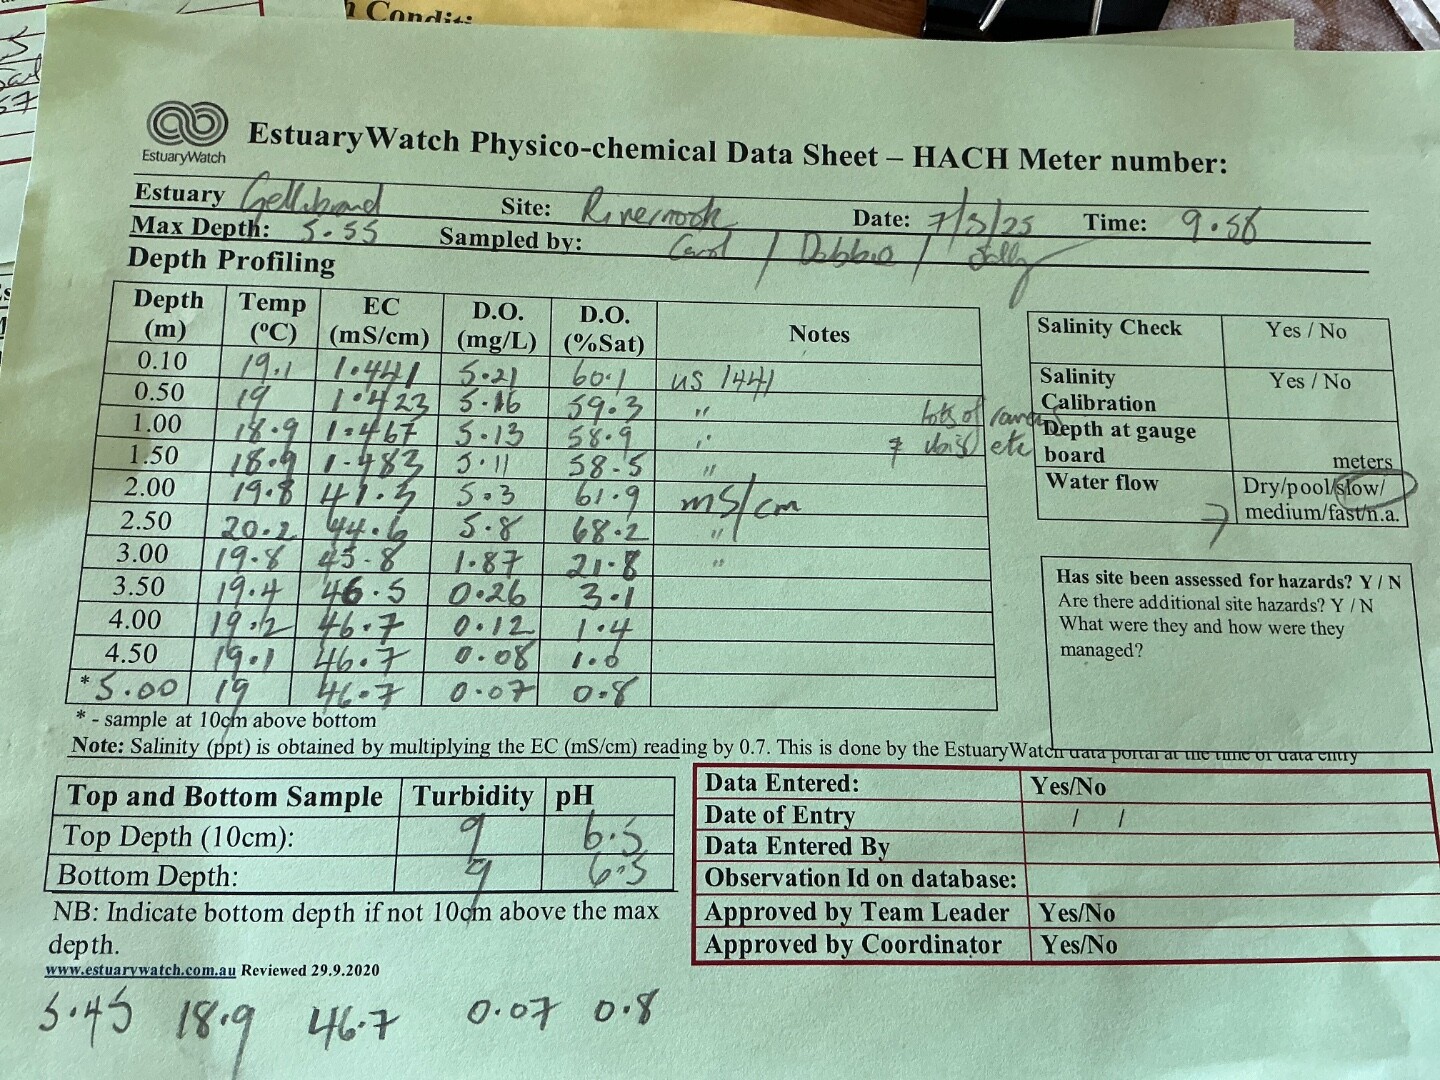 n Conditi
EstuaryWatch
EstuaryWatch Physico-chemical Data Sheet – HACH Meter number:
Estuary Gellibrand Site: Rivernook Date: 7/3/25 Time: 9.56
Max Depth: 5.55 Sampled by: Carol / Debbie / Sally
Depth Profiling
Depth (m) Temp (ºC) EC (mS/cm) D.O. (mg/L) D.O. (%Sat) Notes
0.10 19.1 1.441 5.21 60.1 us 1441
0.50 19 1.423 5.16 59.3 "
1.00 18.9 1.467 5.13 58.9 "
1.50 18.9 1.483 5.11 58.5 "
2.00 19.8 41.3 5.3 61.9 mS/cm
2.50 20.2 44.6 5.8 68.2 "
3.00 19.8 45.8 1.87 21.8 "
3.50 19.4 46.5 0.26 3.1
4.00 19.2 46.7 0.12 1.4
4.50 19.1 46.7 0.08 1.0
*5.00 19 46.7 0.07 0.8
lots of
etc
Salinity Check Yes / No
Salinity Calibration Yes / No
Depth at gauge board meters
Water flow Dry/pool/slow/
medium/fast/n.a.
Has site been assessed for hazards? Y / N
Are there additional site hazards? Y / N
What were they and how were they
managed?
* - sample at 10cm above bottom
Note: Salinity (ppt) is obtained by multiplying the EC (mS/cm) reading by 0.7. This is done by the EstuaryWatch data portal at the time of data entry
Top and Bottom Sample Turbidity pH
Top Depth (10cm): 9 6.5
Bottom Depth: 9 6.5
NB: Indicate bottom depth if not 10cm above the max
depth.
www.estuarywatch.com.au Reviewed 29.9.2020
Data Entered: Yes/No
Date of Entry / /
Data Entered By
Observation Id on database:
Approved by Team Leader Yes/No
Approved by Coordinator Yes/No
5.45 18.9 46.7 0.07 0.8